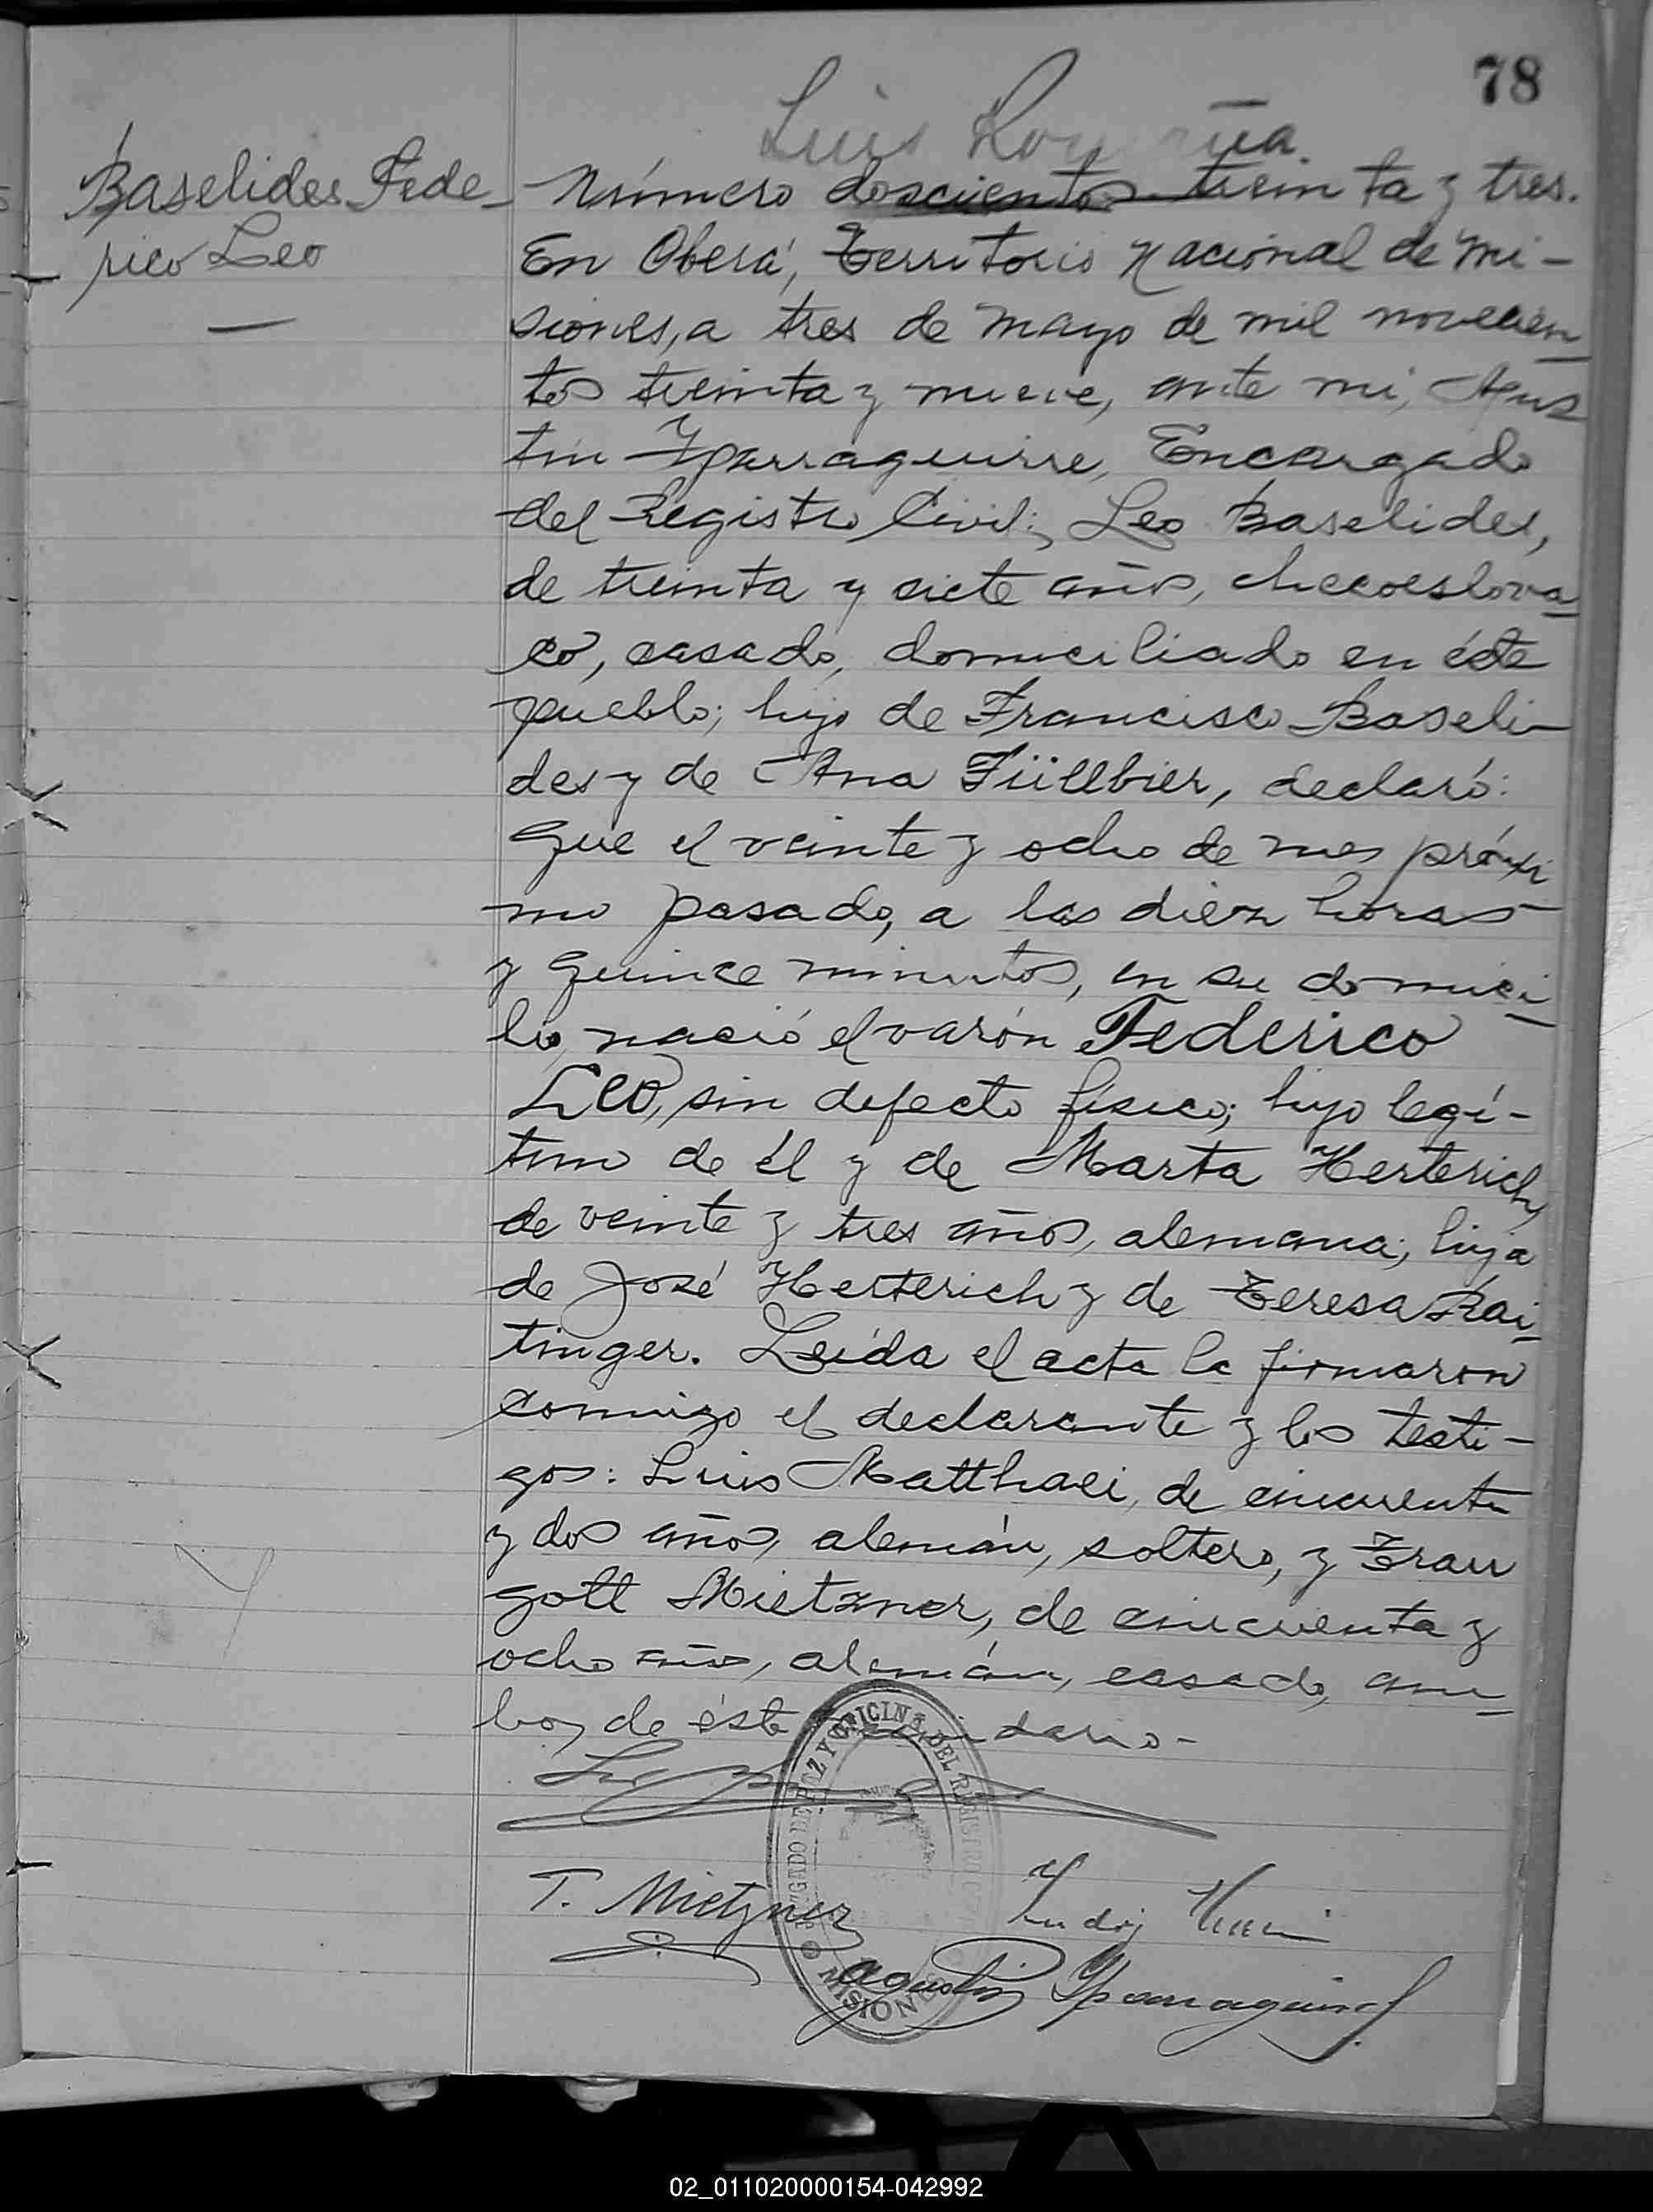 78
Luis
Baselides Fede-
rico Leo
Número doscientos treinta y tres.
En Oberá, Territorio Nacional de Mi-
siones, a tres de Mayo de mil novecien
tos treinta y nueve, ante mi, Agus
tin Yparraguirre, Encargado
del Registro Civil; Leo Baselides,
de treinta y siete años, checoeslova
co, casado, domiciliado en éste
pueblo; hijo de Francisco Baseli-
des y de Ana Füllbier, declaró:
Que el veinte y ocho de mes próxi
mo pasado, a las diez horas
y quince minutos, en su domici
lio nació el varón Federico
Leo, sin defecto físico; hijo legí-
timo de él y de Marta Herterich,
de veinte y tres años, alemana; hija
de José Herterich y de Teresa Rai
tinger. Leída el acta la firmaron
conmigo el declarante y los testi-
gos: Luis Matthaei, de cincuenta
y dos años, alemán, soltero, y Trau
gott Mietzner, de cincuenta y
ocho años, alemán, casado, am
bos de éste vecindario-
JUZGADO DE PAZ Y OFICINA DEL REGISTRO
MISIONES
T. Mietzner
Agustin Yparraguirre
02_011020000154-042992